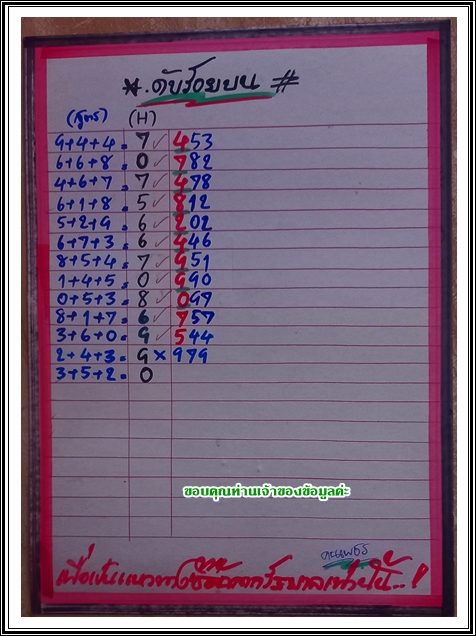 *.ดับร้อยบน #
(สูตร) (H)
9+4+4 = 7 ✓ 453
6+6+8 = 0 ✓ 782
4+6+7 = 7 ✓ 478
6+1+8 = 5 ✓ 812
5+2+9 = 6 ✓ 202
6+7+3 = 6 ✓ 446
8+5+4 = 7 ✓ 951
1+4+5 = 0 ✓ 990
0+5+3 = 8 ✓ 097
8+1+7 = 6 ✓ 757
3+6+0 = 9 ✓ 544
2+4+3 = 9 × 979
3+5+2 = 0
ขอบคุณท่านเจ้าของข้อมูลค่ะ
เพื่อเป็นแนวทางซื้อสลากรัฐบาลเท่านั้น..!